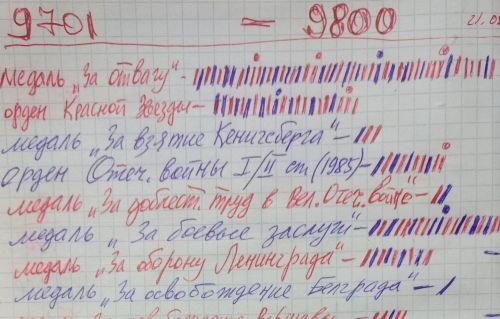 9701 — 9800 21.0
медаль „За отвагу" –
орден Красной Звезды –
медаль „За взятие Кенигсберга" –
орден Отеч. войны I/II ст. (1985) –
медаль „За доблест. труд в Вел. Отеч. войне" –
медаль „За боевые заслуги" –
медаль „За оборону Ленинграда" –
медаль „За освобождение Белграда" –